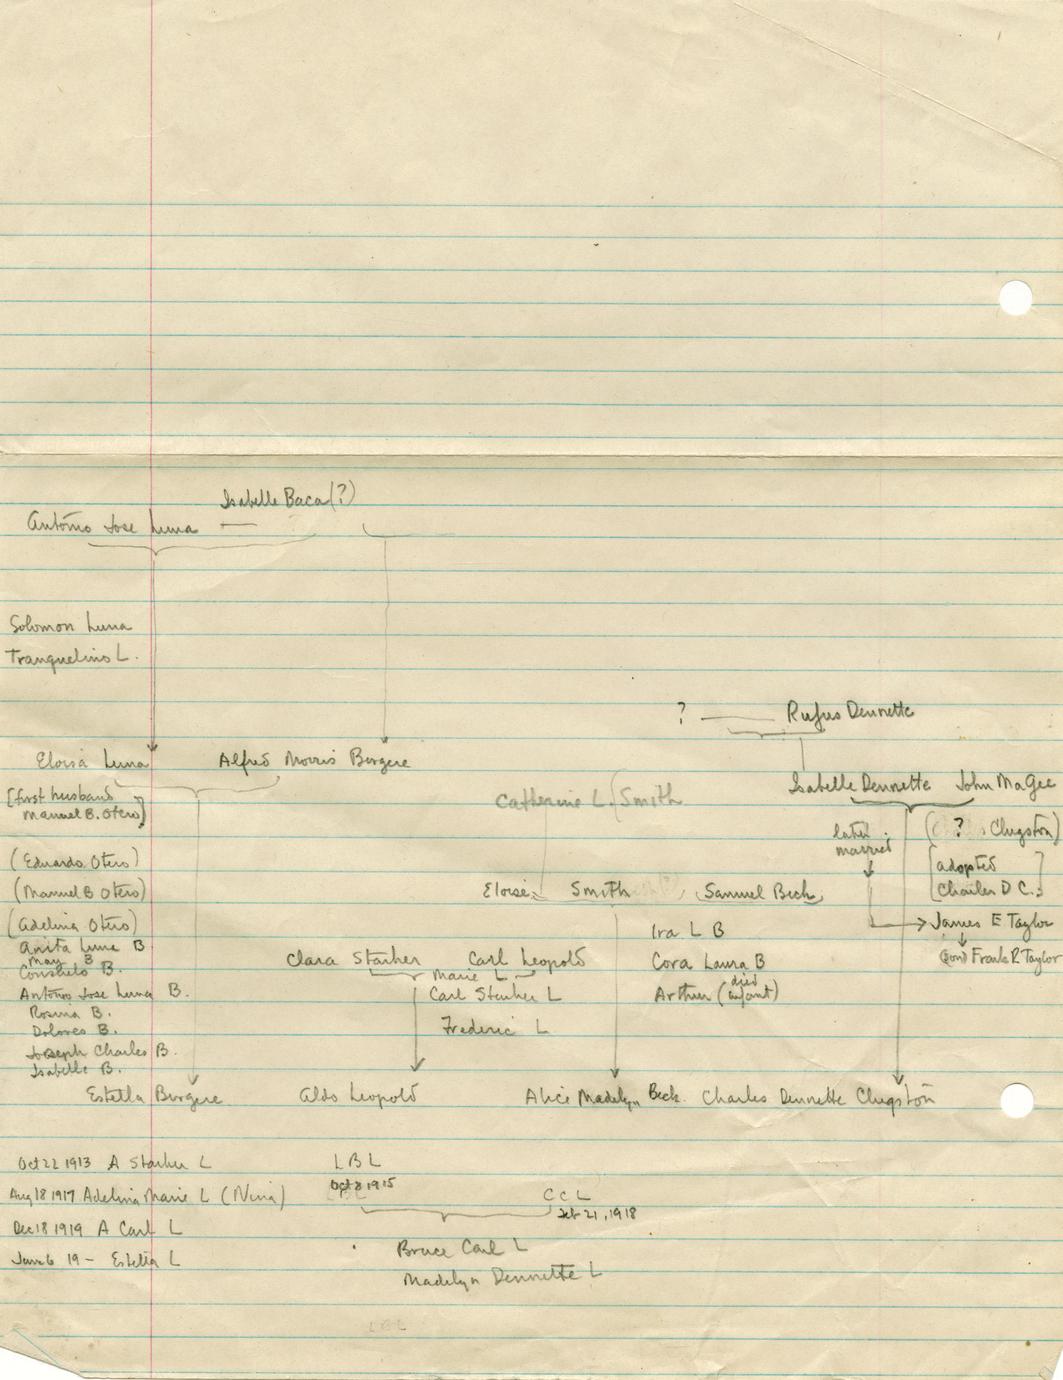 Isabelle Baca (?)
Antonio Jose Luna
Solomon Luna
Tranquelino L.
? Rufus Dennette
Eloisa Luna Alfred Morris Bergere
Isabelle Dennette John MaGee
[first husband
Manuel B. Otero]
Catherine L. Smith
later married
( ? Clugston)
(Eduardo Otero)
[adopted
Charles D C.]
(Manuel B Otero)
Eloise Smith (Samuel Beck)
(Adelina Otero)
Ira L B
James E Taylor
Anita Luna B
May B
Consuelo B.
Clara Starker Carl Leopold
Cora Laura B
(son) Frank R Taylor
Marie L
Antonio Jose Luna B.
Carl Starker L
Arthur (died infant)
Rosina B.
Dolores B.
Frederic L
Joseph Charles B.
Isabelle B.
Estella Bergere Aldo Leopold Alice Madelyn Beck Charles Dennette Clugston
Oct 22 1913 A Starker L
L B L
Oct 8 1915
Aug 18 1917 Adelina Marie L (Nina)
C C L
Feb 21, 1918
Dec 18 1919 A Carl L
Bruce Carl L
19 - Estella L
Madelyn Dennette L
L B L